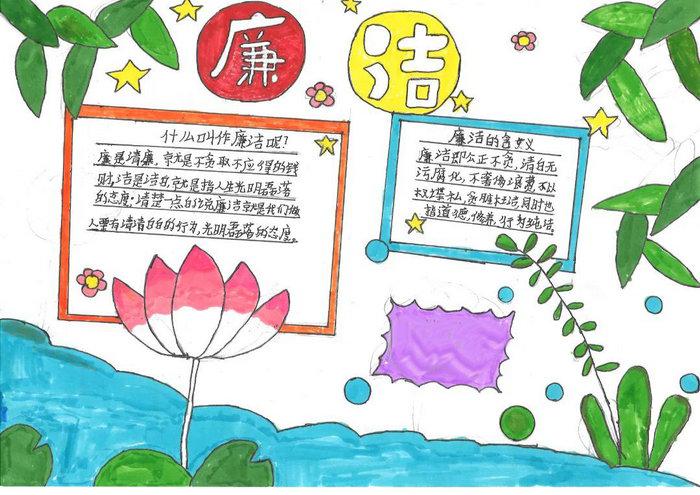 廉洁
什么叫作廉洁呢?
廉是清廉,就是不贪取不应得的钱
财;洁是洁白,就是指人生光明磊落
的态度。清楚一点的说廉洁就是我们做
人要有清清白白的行为,光明磊落的态度。
廉洁的含义
廉洁即公正不贪,清白无
污腐化,不奢侈浪费,不以
权谋私,贪赃枉法,同时也
指道德,修养,行为纯洁。